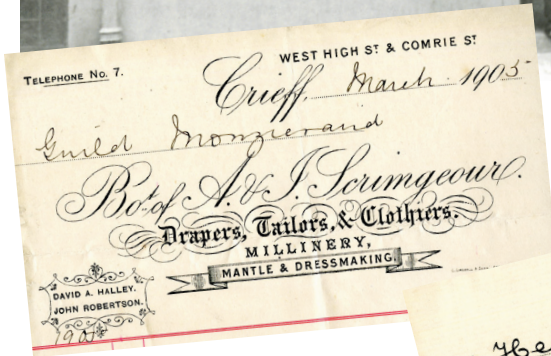 WEST HIGH ST & COMRIE ST
TELEPHONE No. 7.
Crieff, March 1905
Guild Monzievaird
Bot of A. & J. Scrimgeour.
Drapers, Tailors, & Clothiers.
MILLINERY,
MANTLE & DRESSMAKING.
DAVID A. HALLEY.
JOHN ROBERTSON.
1905